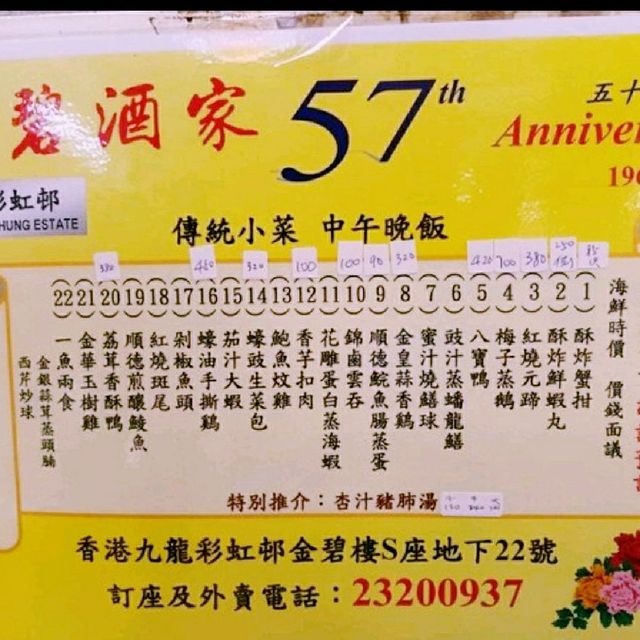 碧酒家
57th
五十
Anniver
196
彩虹邨
HUNG ESTATE
傳統小菜 中午晚飯
海鮮時價 價錢面議
1 酥炸蟹拑
2 酥炸鮮蝦丸
380
3 紅燒元蹄
700
4 梅子蒸鵝
420
5 八寶鴨
6 豉汁蒸蟠龍鱔
7 蜜汁燒鱔球
320
8 金皇蒜香鷄
90
9 順德鯇魚腸蒸蛋
100
10 錦鹵雲吞
11 花雕蛋白蒸海蝦
100
12 香芋扣肉
13 鮑魚炆雞
320
14 蠔豉生菜包
15 茄汁大蝦
460
16 蠔油手撕鷄
17 剁椒魚頭
18 紅燒斑尾
19 順德煎釀鯪魚
20 荔茸香酥鴨
21 金華玉樹雞
22 一魚兩食
金銀蒜茸蒸頭腩
西芹炒球
特別推介：杏汁豬肺湯
香港九龍彩虹邨金碧樓S座地下22號
訂座及外賣電話：23200937